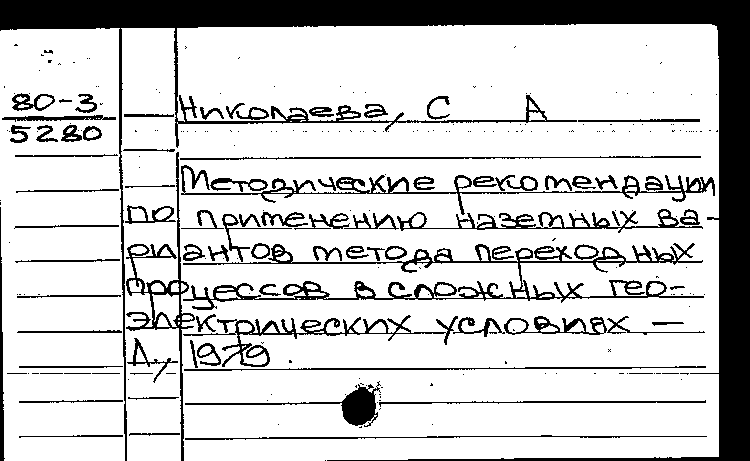 80-3
5280
Николаева, С А
Методические рекомендации
по применению наземных ва-
риантов метода переходных
процессов в сложных гео-
электрических условиях. —
Л., 1979.